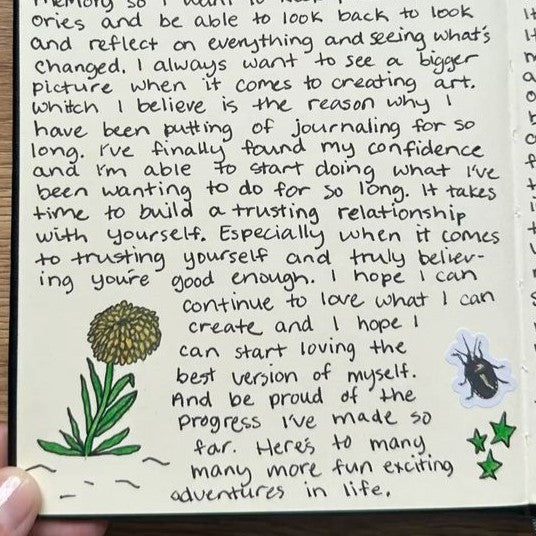 ories and be able to look back to look
and reflect on everything and seeing what's
changed. I always want to see a bigger
picture when it comes to creating art.
Whitch I believe is the reason why I
have been putting of journaling for so
long. I've finally found my confidence
and I'm able to start doing what I've
been wanting to do for so long. It takes
time to build a trusting relationship
with yourself. Especially when it comes
to trusting yourself and truly believ-
ing you're good enough. I hope I can
continue to love what I can
create and I hope I
can start loving the
best version of myself.
And be proud of the
progress I've made so
far. Here's to many
many more fun exciting
adventures in life.